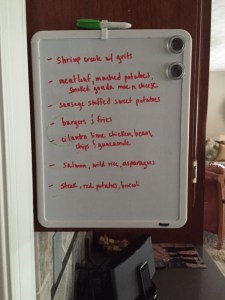 - Shrimp creole w/ grits
- meatloaf, mashed potatoes,
Smoked gouda mac n cheese
- Sausage stuffed sweet potatoes
- burgers & fries
- cilantro lime chicken, beans,
chips & guacamole
- Salmon, wild rice, asparagus
- Steak, red potatoes,